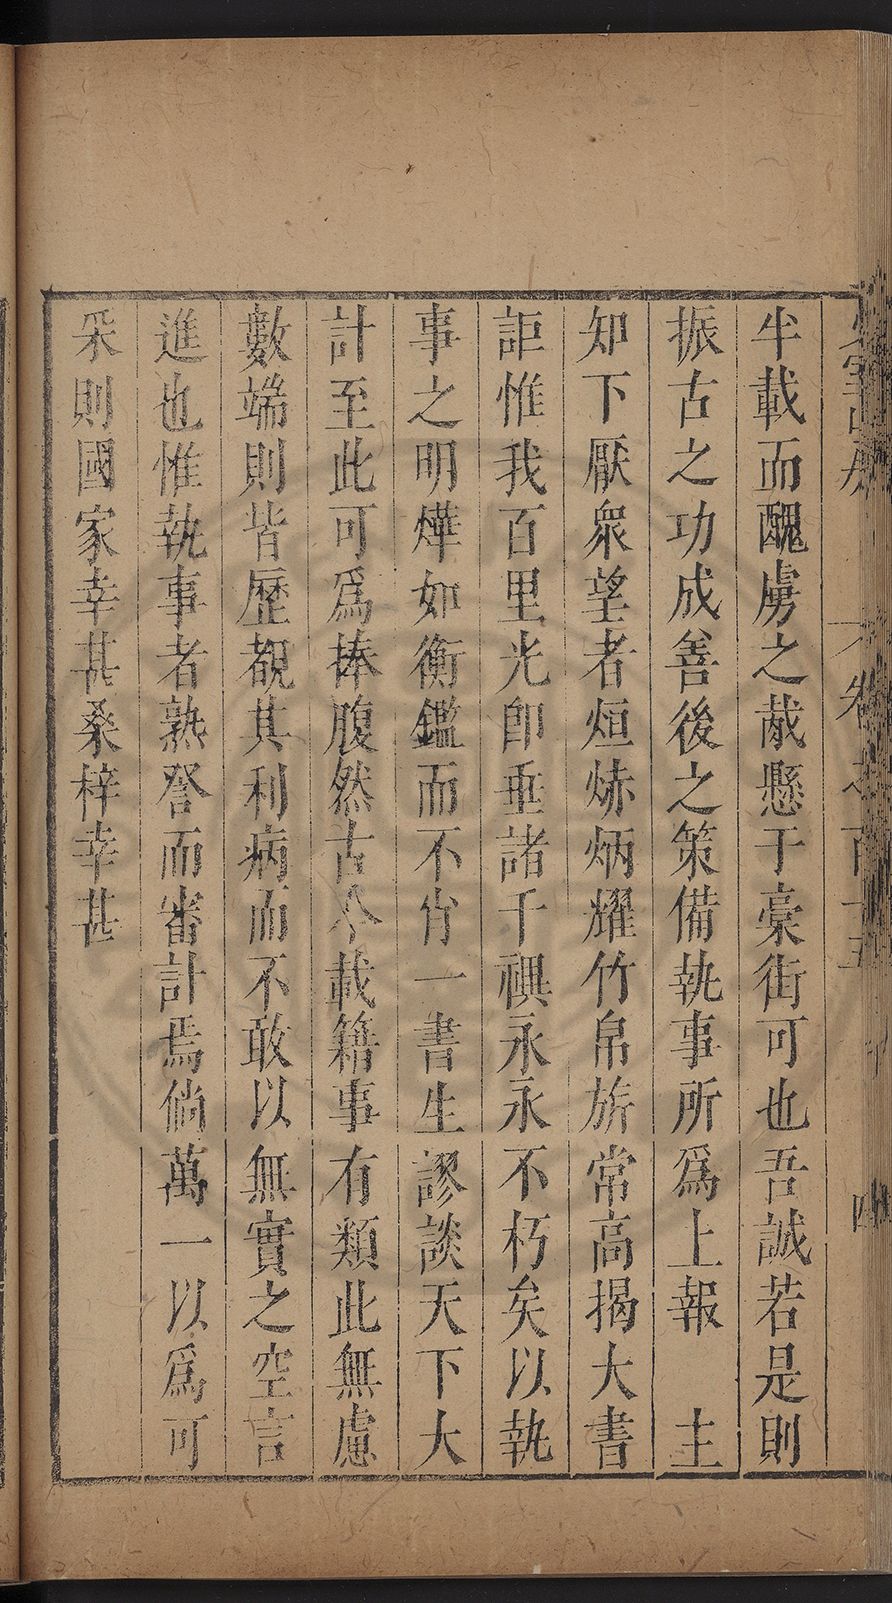 半載而醜虜之馘懸于藁街可也吾誠若是則
振古之功成善後之策備執事所爲上報　主
知下厭衆望者烜赫炳耀竹帛旂常高揭大書
詎惟我百里光卽垂諸千禩永永不朽矣以執
事之明燁如衡鑑而不肖一書生謬談天下大
計至此可爲捧腹然古今載籍事有類此無慮
數端則皆歷覩其利病而不敢以無實之空言
進也惟執事者熟詧而審計焉倘萬一以爲可
采則國家幸甚桑梓幸甚